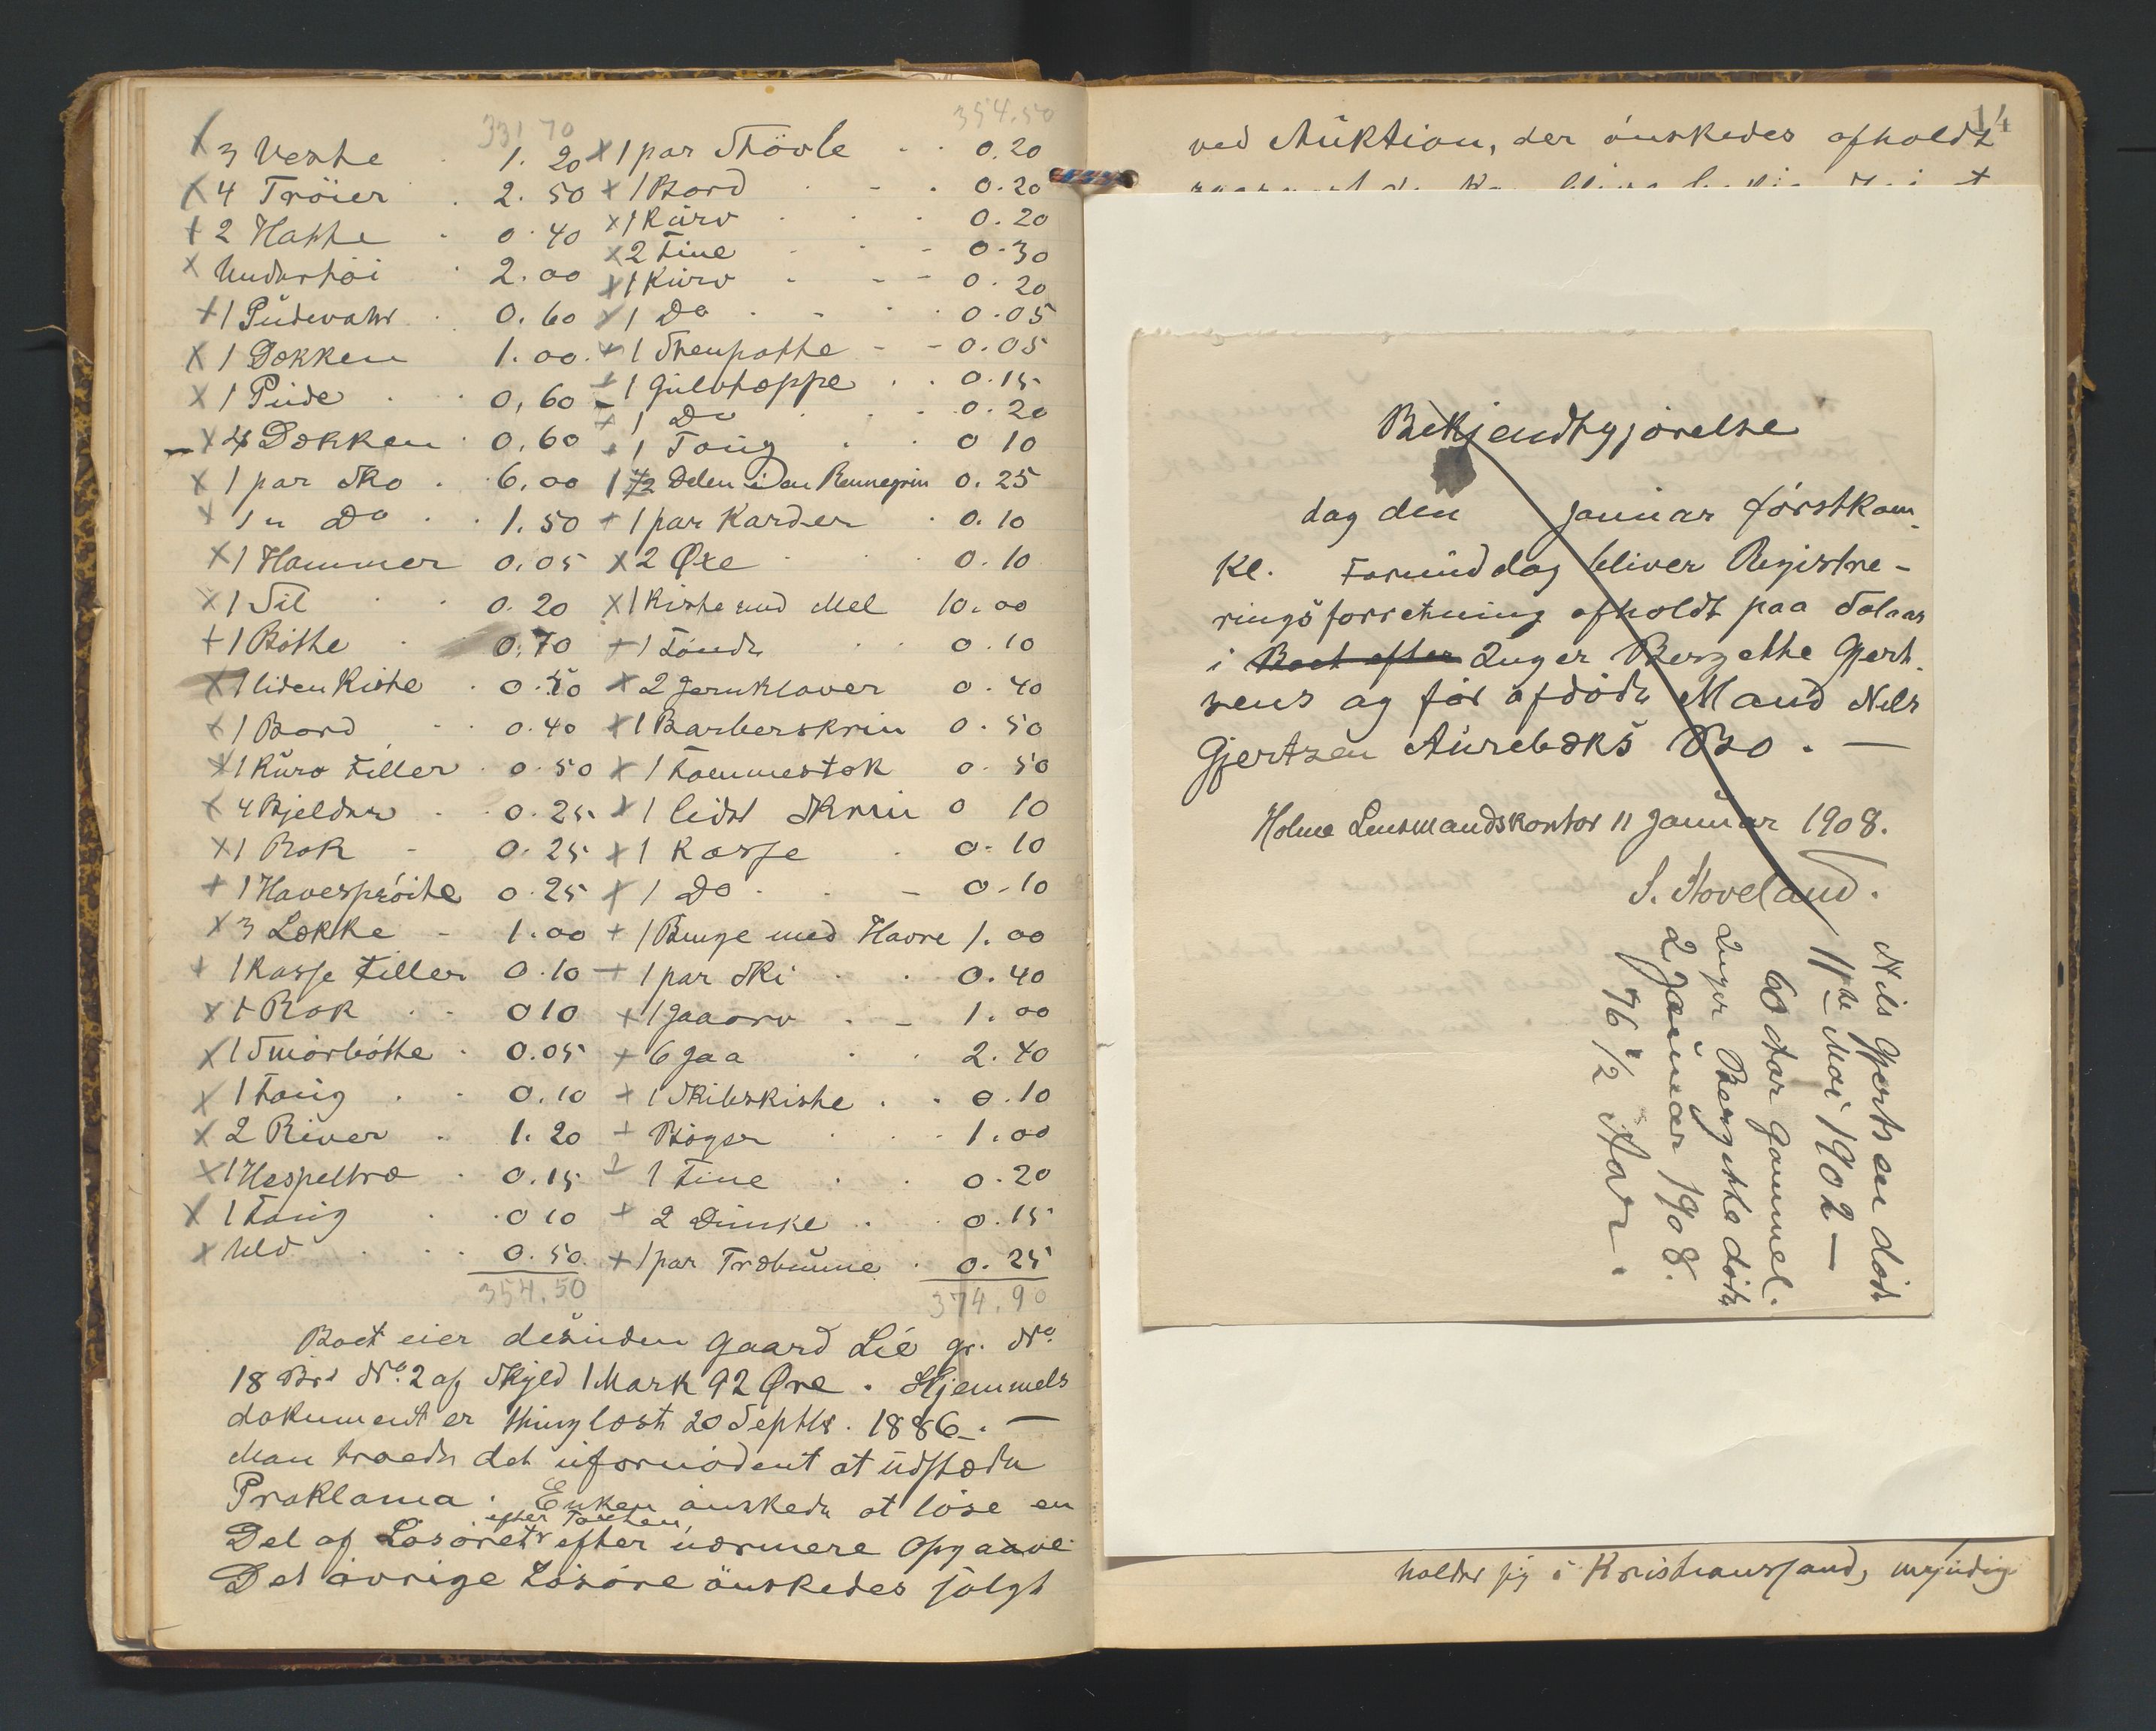 331 70
x 3 Veste . 1. 20
x 4 Tröier . 2. 50
+ 2 Hatte . 0. 40
x Undertöi . 2. 00
+ 1 Pudevahr . 0. 60
x 1 Dækken 1. 00
x 1 Pude . . 0, 60
x 4 Dækken . 0. 60
x 1 par Sko . 6, 00
x 1 " Do . . 1. 50
x 1 Hammer 0. 05
x 1 Sil . . 0. 20
+ 1 Bötte . 0. 70
x 1 liden Kiste . 0.
x 1 Bord . . 0. 40
x 1 Kurv Filler . 0. 50
x 4 Bjelder . . 0. 25
x 1 Rok - 0. 25
+ 1 Havespröite 0. 25
x 3 Løkke - 1. 00
+ 1 Kasse Filler 0. 10
x 1 Rok . . 0 10
x 1 Smörbötte . 0. 05
x 1 Toug . . 0. 10
x 2 River . 1. 20
x 1 Hespeltræ . 0. 15
x 1 Toug . . 0 10
x Uld . . . 0. 50
354. 50
354. 50
x 1 par Stövle . . 0. 20
+ 1 Bord . - . 0. 20
x 1 Kurv . . . 0. 20
x 2 Tine - . - 0. 30
x 1 Kurv . - - 0. 20
x 1 Do . - . . 0. 05
+ 1 Stenpotte - - 0. 05
+ 1 Gulvtæppe . . 0. 15
+ 1 Do . . . 0. 20
+ 1 Toug . . 0 10
1/2 Delen i en Rennegrin 0. 25
+ 1 par Karder . 0. 10
x 2 Øxe . . 0. 10
x 1 Kiste med Mel 10. 00
+ 1 Tönde . . 0. 10
x 2 Jernklaver 0. 40
x 1 Barberskrin 0. 50
x 1 Tommestok 0. 50
x 1 lidet Skrin 0 10
x 1 Kasse . 0. 10
x 1 Do . . - 0. 10
+ 1 Binge med Havre 1. 00
+ 1 par Ski . . 0. 40
+ 1 Jaaorv . - 1. 00
+ 6 Jaa . . 2. 40
+ 1 Skibskiste . . 0. 10
+ Böger . . . 1. 00
+ 1 Tine . . 0. 20
+ 2 Dunke . . 0. 15
+ 1 par Træbunne . 0. 25
374. 90
Boet eier desuden Gaard Lie gr. No.
18 Brs No. 2 af Skyld 1 Mark 92 Øre . Hjemmels
dokument er thinglæst 20 Septbr. 1886. —
Man troede det ufornödent at udstæde
Proklama . Enken önskede at löse en
efter Taxten
Del af Lösöret efter nærmere Opgaave
Det övrige Lösöre önskedes solgt
14
ved Auktion, der önskedes afholdt
Bekjendtgjörelse
dag den Januar förstkom.
Kl. Formiddag bliver Registre-
ringsforretning afholdt paa Solaas
i Boet efter Inger Bergethe Gjert.
sens og för afdöde Mand Nils
Gjertsen Aurebæks Bo . —
Holme Lensmandskontor 11 Januar 1908.
S. Stoveland.
Nils Gjertsen död
11te Mai 1902 —
60 Aar gammel.
Inger Bergethe död
2 Januar 1908.
76 1/2 Aar.
holder sig i Kristianssand, myndig